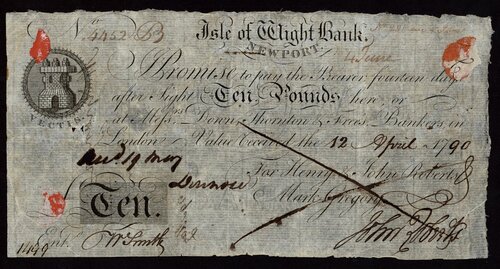 No. 4452 B
Isle of Wight Bank.
NEWPORT.
4 June
VECTIS
I Promise to pay the Bearer fourteen days
after Sight Ten Pounds here, or
at Messrs. Down, Thornton & Frees, Bankers in
London Value received the 12 April 1790
19 May
For Henry & John Roberts &
Mark Gregory
£ Ten.
John Roberts
Entd. Wm Smith